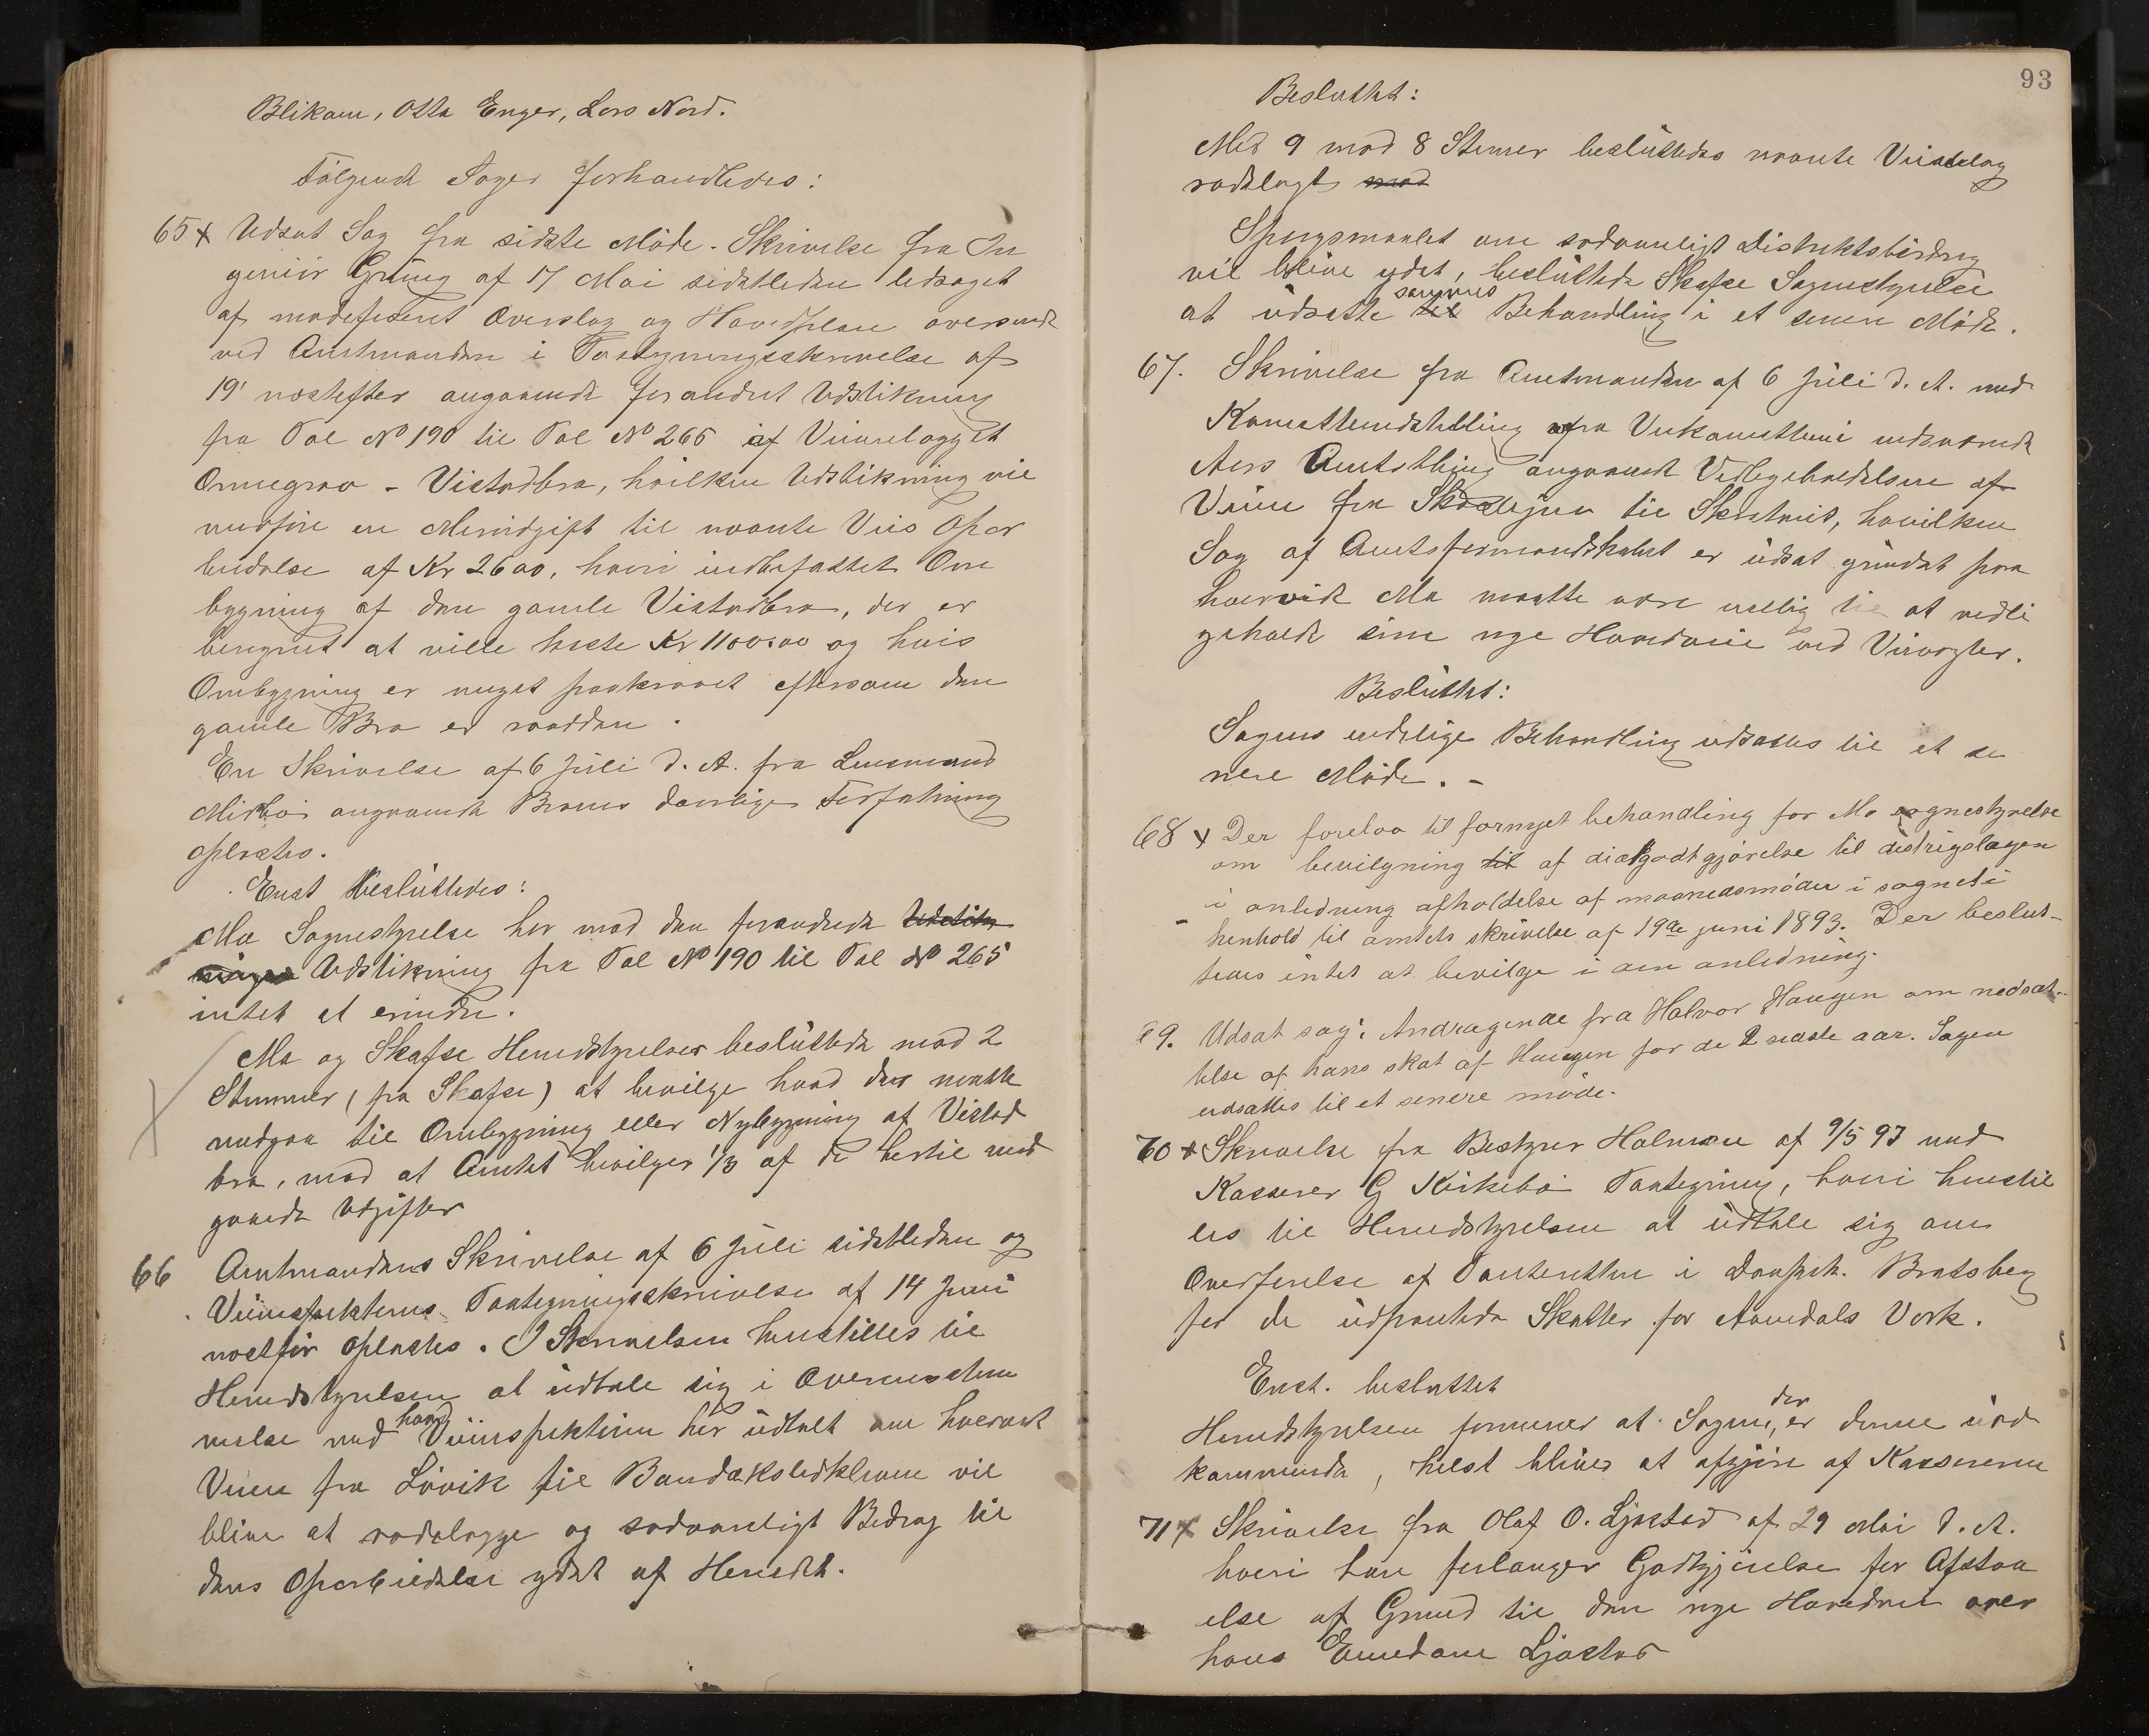 Blikom, Otto Enger, Lars Nord.
Følgende Sager forhandledes:
65 x Udsat Sag fra sidste Møde. Skrivelse fra In
geniør Grüng af 17 Mai sidstleden ledsaget
af modificeret Overslag og Hovedplan oversendt
ved Amtmanden i Paategningsskrivelse af
19' næstefter angaaende forandret Udstikning
fra Pæl No 190 til Pæl No 265 af Veianlægget
Ormegrav - Vistadbro, hvilken Udstikning vil
medføre en Merudgift til nævnte Veis Opar
beidelse af Kr 2600, heri indbefattet Om
bygning af den gamle Vistadbro, der er
beregnet at ville koste Kr 1100.00 og hvis
Ombygning er meget paakrævet eftersom den
gamle Bro er raadden.
En Skrivelse af 6 Juli d. A. fra Lensmand
Midbø angaaende Broens daarlige Forfatning
oplæstes.
Enst besluttedes:
Mo Sognestyrelse har mod den forandrede Udstik
ningen Udstikning fra Pæl No 190 til Pæl No 265
intet at erindre.
Mo og Skafse Herredstyrelser besluttede mod 2
Stemmer (fra Skafse) at bevilge hvad der maatte
medgaa til Ombygning eller Nybygning af Vistad
bro, mod at Amtet bevilger 1/3 af de hertil med
gaaende Udgifter
66 Amtmandens Skrivelse af 6 Juli sidstleden og
Veiinspektørens Paategningsskrivelse af 14 Juni
næstfør oplæstes. I Skrivelsen henstilles til
Herredstyrelsen at udtale sig i Overensstem
melse med hvad Veiinspektøren har udtalt om hvorvidt
Veien fra Løvik til Bandaksledkleven vil
blive at rodelægge og sedvanligt Bidrag til
dens Oparbeidelse ydet af Herredet.
93
Besluttet:
Med 9 mod 8 Stemer besluttedes nævnte Veianlæg
rodelagt mod
Spørgsmaalet om sedvanligt Distriktsbidrag
vil blive ydet, besluttede Skafse Sognestyrelse
at udsætte til sammes Behandling i et senere Møde.
67. Skrivelse fra Amtmanden af 6 Juli d. A. med
Komitteindstilling fra Veikomitteen indeværende
Aars Amtsthing angaaende Vedligeholdelsen af
Veien fra til Skredtveit, hvilken
Sag af Amtsformandskabet er udsat grundet paa
hvorvidt Mo maatte være villig til at vedli
geholde sine nye Hovedveie ved Veivogter.
Besluttet:
Sagens endelige Behandling udsattes til et se
nere Møde. -
68 x Der forelaa til fornyet behandling for Mo sognestyrelse
om bevilgning til af diætgodtgjørelse til distrigslægen
i anledning afholdelse af maanedsmøder i sognet i
henhold til amtets skrivelse af 19de juni 1893. Der beslut-
tedes intet at bevilge i den anledning.
69. Udsat sag: Andragende fra Halvor Haugen om nedsæt-
telse af hans skat af Haugen for de 2 sidste aar. Sagen
udsattes til et senere møde.
70 x Skrivelse fra Bestyrer Holman af 9/5 93 med
Kasserer G Kirkebø Paategning, hvori henstil
les til Herredstyrelsen at udtale sig om
Overførelse af Panteretten i Dampsk. Bratsberg
for de udpantede Skatter for Aamdals Verk.
Enst. besluttet
Herredstyrelsen formener at Sagen, der er denne ived
kommende, helst bliver at afgjøre af Kassereren
71 x Skrivelse fra Olaf O. Ljostad af 29 Mai d. A.
hvori han forlanger Godtgjørelse for Afstaa
else af Grund til den nye Hovedvei over
hans Eiendom Ljostad